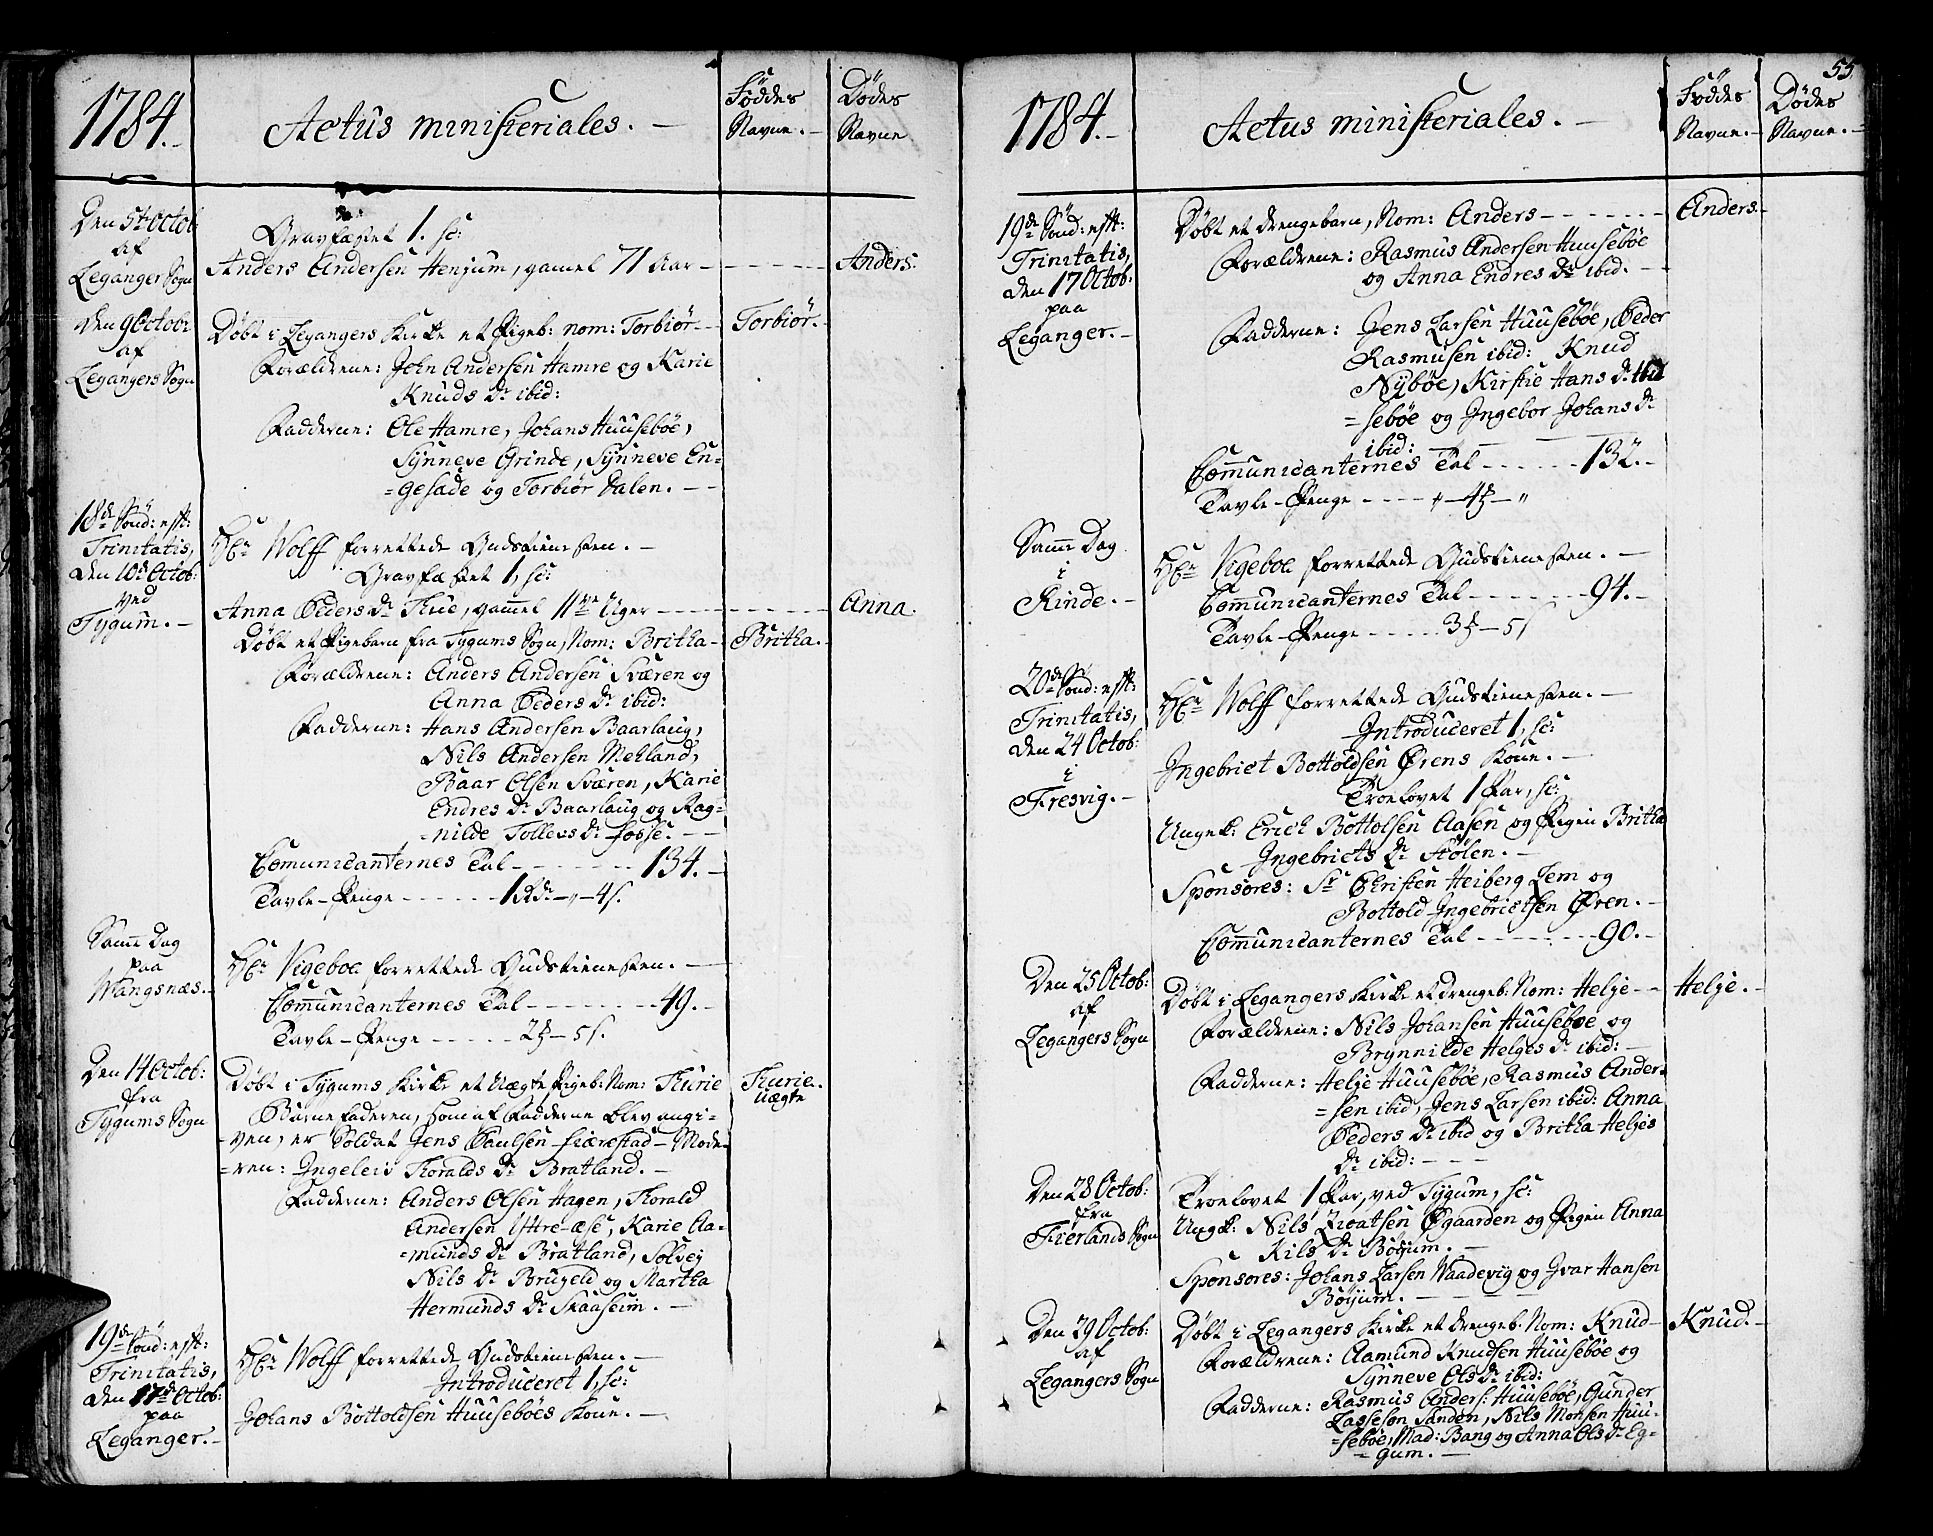 1784.
Actus ministeriales.
Føddes Navne.
Dødes Navne
Den 5te Octob:
af
Leganger Sogn
Gravfæstet 1. sc:
Anders Andersen Henjum, gamel 71 Aar
Anders.
Den 9 Octobr
af
Legangers Sogn
Døbt i Legangers Kirke et Pigeb: nom: Torbiør
Torbiør.
Forældrene: John Andersen Hamre og Karie
Knuds Dr ibid:
Fadderne: Ole Hamre, Johans Huusebøe,
Synneve Grinde, Synneve En=
=gesade og Torbiør Dalen.
18de Sønd: eft:
Trinitatis,
den 10de Octob:
ved
Tygum.
Hr Wolff forrettede Gudstienesten.
Gravfæstet 1, sc:
Anna Peders Dr Thue, gammel 11ve Uger
Anna.
Døbt et Pigebarn fra Tygums Sogn, Nom: Britha
Britha.
Forældrene: Anders Andersen Sværen og
Anna Peders Dr ibid:
Fadderne: Hans Andersen Baarlaug,
Nils Andersen Mehland,
Baar Olsen Sværen, Karie
Endres Dr Baarlaug og Rag=
=nilde Tollevs Dr Fosse.
Comunicanternes Tal 134.
Tavle-Penge 1 Rdr - „ - 4 s.
Samme Dag
paa
Wangsnæs.
Hr Vigeboe forrettede Gudstienesten.
Comunicanternes Tal 49.
Tavle-Penge 2 ℔ - 5 s.
Den 14 Octob:
fra
Tygums Sogn
Døbt i Tygums Kirke et Uægte Pigeb: Nom: Thurie
Thurie.
Uægte
Barnefaderen, som af Fadderne blev angi=
=ven, er Soldat Jens Paulsen Fiærestad - Mode=
=ren: Ingeleiv Thoralds Dr Bratland.
Fadderne: Anders Olsen Hagen, Thorald
Andersen Yttre-æse, Karie Aa=
=munds Dr Bratland, Solvej
Nils Dr Brugeld og Martha
Hermunds Dr Skaaseim.
19de Sønd: eft:
Trinitatis,
den 17de Octob:
paa
Leganger.
Hr Wolff forrettede Gudstienesten.
Introduceret 1, sc:
Johans Bottoldsen Huusebøes Kone.
55
1784.
Actus ministeriales.
Føddes Navne.
Dødes Navne.
19de Sønd: eft:
Trinitatis,
den 17 Octob:
paa
Leganger.
Døbt et Drengebarn, Nom: Anders
Anders.
Forældrene: Rasmus Andersen Huusebøe
og Anna Endres Dr ibid.
Fadderne: Jens Larsen Huusebøe, Peder
Rasmusen ibid: Knud
Nybøe, Kirstie Hans Dr
=sebøe og Ingebor Johans Dr
ibid:
Communicanternes Tal 132.
Tavle-Penge „ - 4 ℔ - „
Samme Dag
i
Rinde.
Hr Vigeboe forrettede Gudstienesten.
Communicanternes Tal 94.
Tavle-Penge 3 ℔ - 5 s
20de Sønd: eft:
Trinitatis,
den 24 Octob:
i
Fresvig.
Hr Wolff forrettede Gudstienesten.
Introduceret 1, sc:
Ingebrict Bottoldsen Ørens Kone.
Troelovet 1 Par, sc:
Ungk: Erich Bottolsen Aasen og Pigen Britha
Ingebricts Dr Stølen.
Sponsores: Sr Christen Heiberg Lem og
Bottold Ingebrictsen Øren.
Communicanternes Tal 90.
Den 25 Octob:
af
Legangers Sogn
Døbt i Legangers Kirke et Drengeb: Nom: Helje
Helje.
Forældrene: Nils Johansen Huusebøe og
Brynnilde Helges Dr ibid:
Fadderne: Helje Huusebøe, Rasmus Ander=
=sen ibid, Jens Larsen ibid: Anna
Peders Dr ibid og Britha Heljes
Dr ibid:
Den 28 Octob:
fra
Fierlands Sogn
Troelovet 1 Par, ved Tygum, sc:
Ungk: Nils Øgaarden og Pigen Anna
Nils Dr Bøyum.
Sponsores: Johans Larsen Waadevig og Ivar Hansen
Bøyum.
Den 29 Octob:
af
Legangers Sogn
Døbt i Legangers Kirke et Drengeb. Nom: Knud
Knud.
Forældrene: Aamund Knudsen Huusebøe og
Synneve Ols Dr ibid:
Fadderne: Rasmus Anders: Huusebøe, Gunder
Lassesøn Sanden, Nils Monsen Huu=
=sebøe, Mad: Bang og Anna Ols Dr Eg=
=gum.